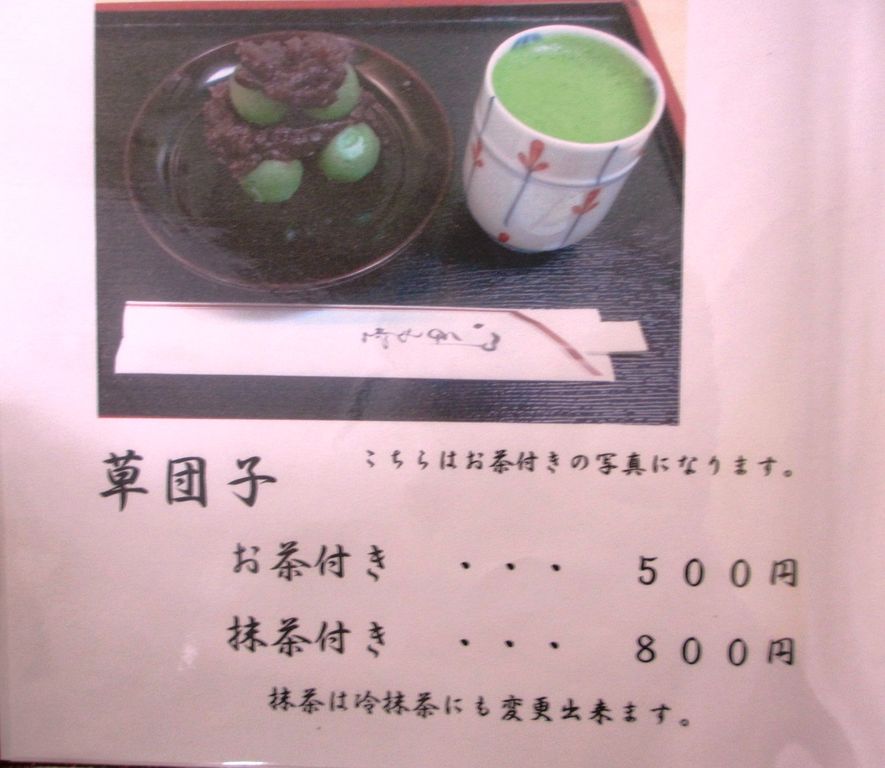 草団子
こちらはお茶付きの写真になります。
お茶付き ・・・ ５００円
抹茶付き ・・・ ８００円
抹茶は冷抹茶にも変更出来ます。